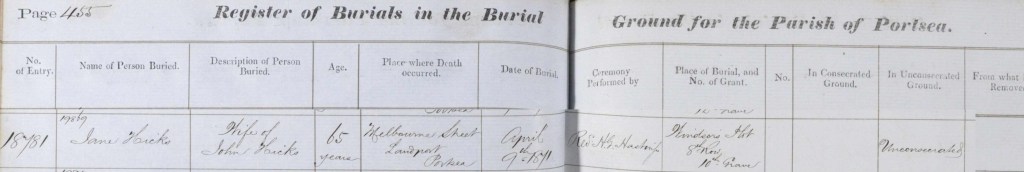 Page 455 Register of Burials in the Burial Ground for the Parish of Portsea.
No. of Entry. Name of Person Buried. Description of Person Buried. Age. Place where Death occurred. Date of Burial. Ceremony Performed by Place of Burial, and No. of Grant. No. In Consecrated Ground. In Unconsecrated Ground. From what Removed
18781 Jane Hicks Wife of John Hicks 65 years Melbourne Street Landport Portsea April 9th 1871 Revd H. Plot 8th Row 10th Grave Unconsecrated